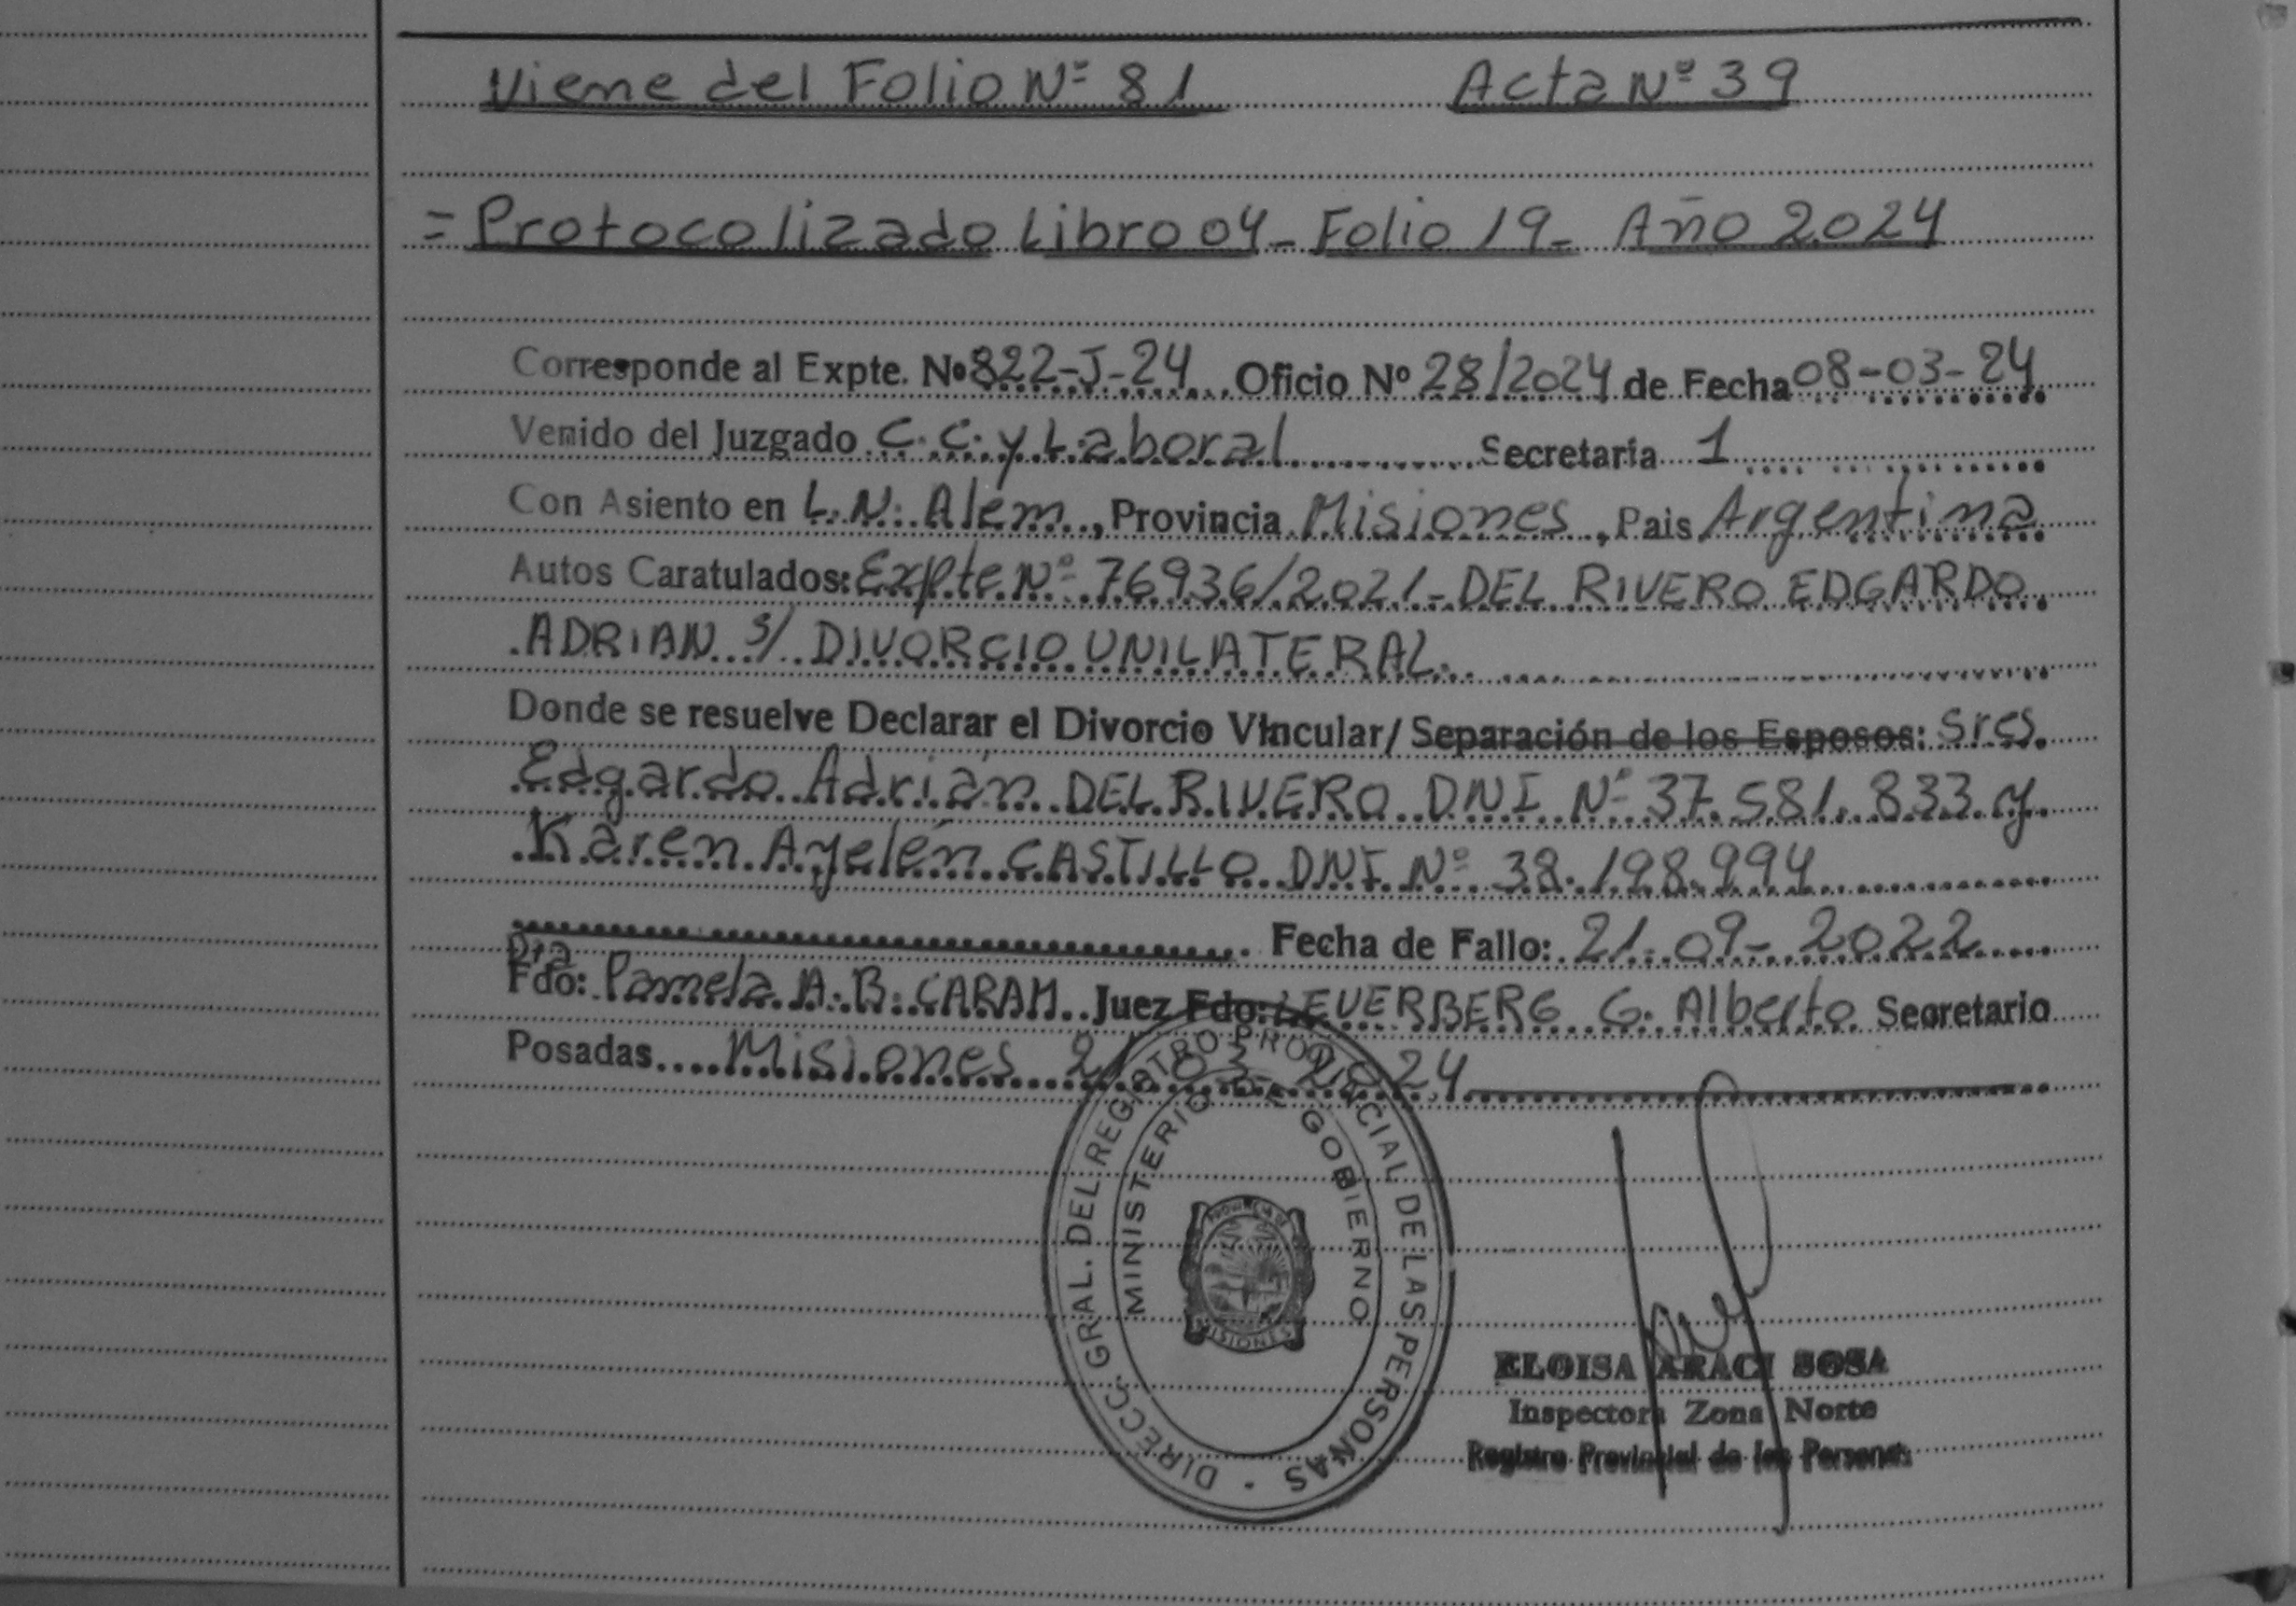 Viene del Folio Nº 81 Acta Nº 39
= Protocolizado Libro 04 - Folio 19 - Año 2024
Corresponde al Expte. Nº 822-J-24 Oficio Nº 28/2024 de Fecha 08-03-24
Venido del Juzgado C.C. y Laboral Secretaria 1
Con Asiento en L.N. Alem, Provincia Misiones, Pais Argentina
Autos Caratulados: Expte Nº 76936/2021 - DEL RIVERO EDGARDO
ADRIAN S/ DIVORCIO UNILATERAL.
Donde se resuelve Declarar el Divorcio Vincular/ Separación de los Esposos: Sres.
Edgardo Adrián DEL RIVERO DNI Nº 37.581.833 y
Karen Ayelén CASTILLO DNI Nº 38.198.994
Fecha de Fallo: 21-09-2022
Dra
Fdo: Pamela A. B. CARAM Juez Fdo: LEVERBERG G. Alberto Secretario
Posadas Misiones 21 03 2024
DIRECC. GRAL. DEL REGISTRO PROVINCIAL DE LAS PERSONAS
MINISTERIO DE GOBIERNO
PROVINCIA DE
MISIONES
ELOISA ARACI SOSA
Inspectora Zona Norte
Registro Provincial de las Personas